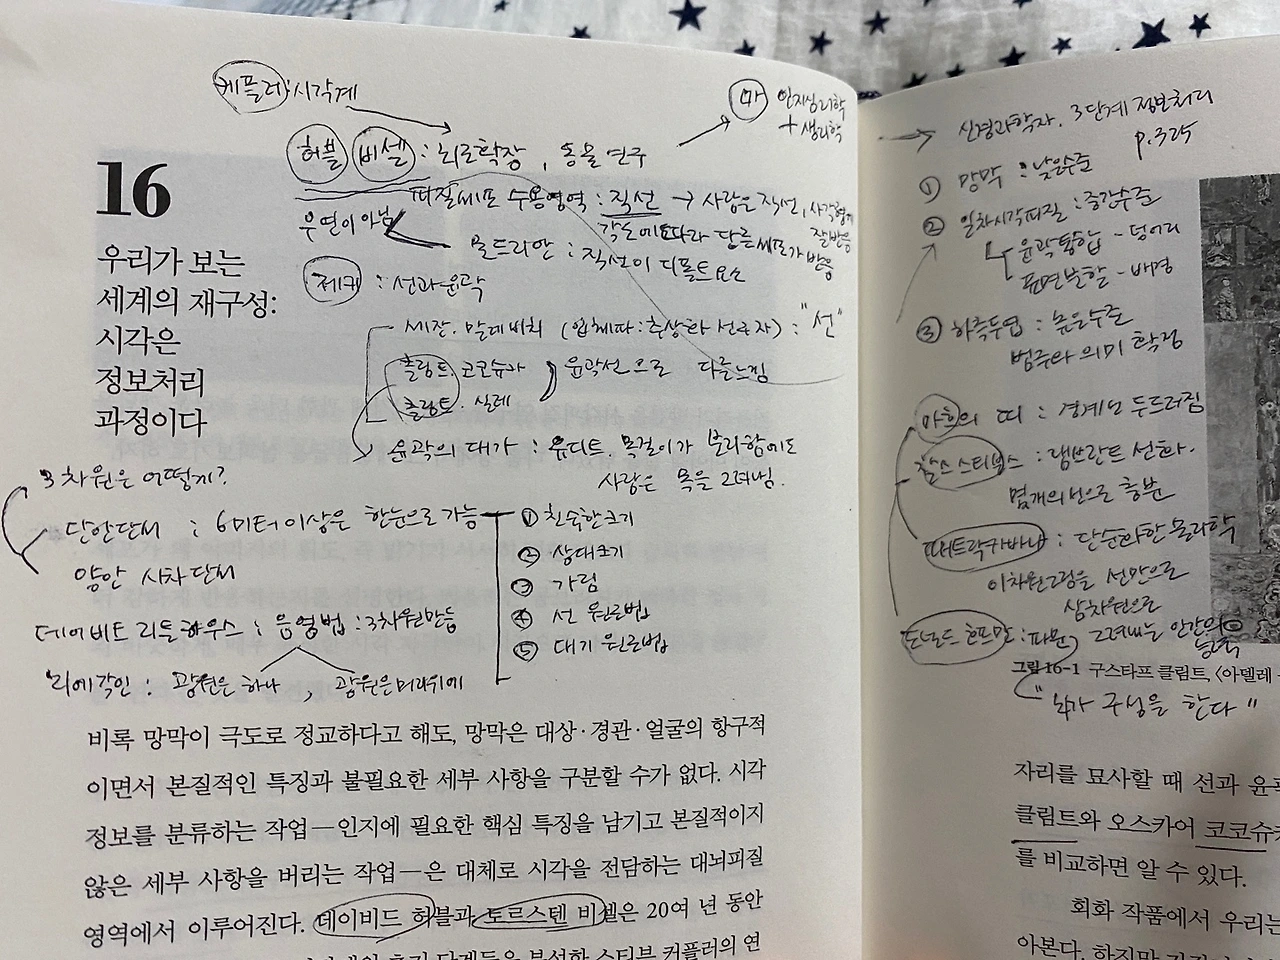 케플러 : 시각계
허블 비셀 : 회로확장, 동물 연구
마 인지심리학
+ 생리학
피질세포 수용영역 : 직선 → 사람은 직선, 사각형에
잘반응
각도에따라 다른세포가 반응
우연이 아님
몬드리안 : 직선이 디폴트요소
제키 : 선과 윤곽
세잔. 말레비치 (입체파 : 추상화 선구자) : "선"
클림트. 코코슈카 윤곽선으로 다른느낌
클림트. 실레
윤곽의 대가 : 유디트. 목걸이가 분리함에도
사람은 목을 그려냄.
16
우리가 보는
세계의 재구성:
시각은
정보처리
과정이다
3차원은 어떻게?
단안단서 : 6미터 이상은 한눈으로 가능
양안 시차단서
① 친숙한크기
② 상대크기
③ 가림
④ 선 원근법
⑤ 대기 원근법
데이비드 리튼하우스 : 음영법 : 3차원만듬
뇌에 각인 : 광원은 하나, 광원은 머리위에
비록 망막이 극도로 정교하다고 해도, 망막은 대상·경관·얼굴의 항구적
이면서 본질적인 특징과 불필요한 세부 사항을 구분할 수가 없다. 시각
정보를 분류하는 작업—인지에 필요한 핵심 특징을 남기고 본질적이지
않은 세부 사항을 버리는 작업—은 대체로 시각을 전담하는 대뇌피질
영역에서 이루어진다. 데이비드 허블과 토르스텐 비셀은 20여 년 동안
단계들을 분석한 스티브 커플러의 연
→ 신경과학자. 3단계 정보처리
p.325
① 망막 : 낮은수준
② 일차시각피질 : 중간수준
윤곽통합 - 덩어리
표면분할 - 배경
③ 하측두엽 : 높은수준
범주와 의미 확정
마흐의 띠 : 경계선 두드러짐
찰스 스티븐스 : 램브란트 선화.
몇개의선으로 충분
패트릭카바나 : 단순화한 물리학
이차원그림을 선만으로
삼차원으로
도널드 호프만 : 파문, 그려내는 인간의
능력
그림 16-1 구스타프 클림트, 〈아델레
"뇌가 구성을 한다"
자리를 묘사할 때 선과 윤곽
클림트와 오스카어 코코슈카
를 비교하면 알 수 있다.
회화 작품에서 우리는
아본다. 하지만